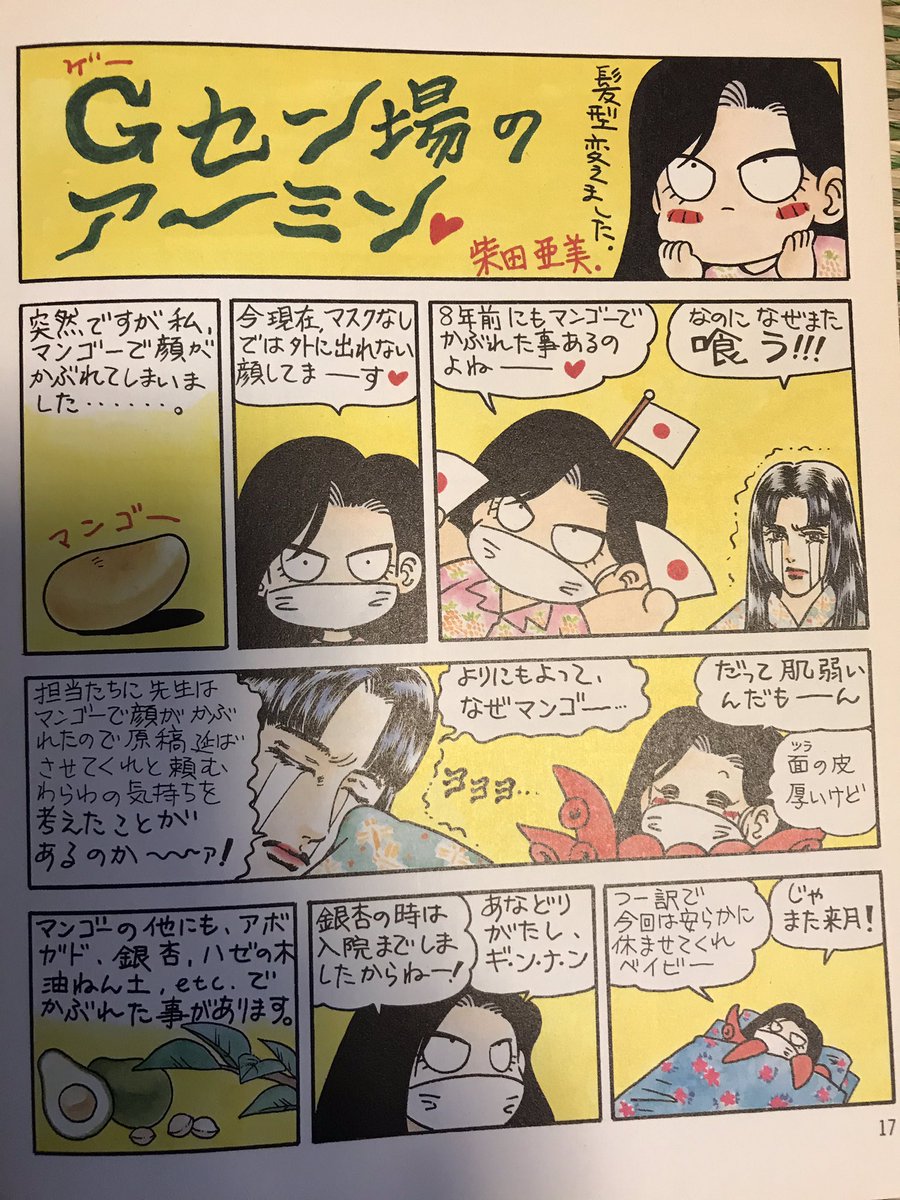 ゲー
Gセン場の
アーミン♥
髪型変えました。
柴田亜美.
突然ですが私、
マンゴーで顔が
かぶれてしまいま
した‥‥‥。
マンゴー
今現在、マスクなし
では外に出れない
顔してまーーす♥
8年前にもマンゴーで
かぶれた事あるの
よねーー♥
なのになぜまた
喰う!!!
担当たちに先生は
マンゴーで顔がかぶ
れたので原稿延ば
させてくれと頼む
わらわの気持ちを
考えたことが
あるのか〜〜ァ!
よりにもよって、
なぜマンゴー…
ヨヨヨ…
だって肌弱い
んだもーーん
ツラ
面の皮
厚いけど
マンゴーの他にも、アボ
ガド、銀杏、ハゼの木
油ねん土、etc.で
かぶれた事があります。
銀杏の時は
入院までしま
したからねー!
あなどり
がたし、
ギ・ン・ナ・ン
つー訳で
今回は安らかに
休ませてくれ
ベイビー
じゃ
また来月!
17